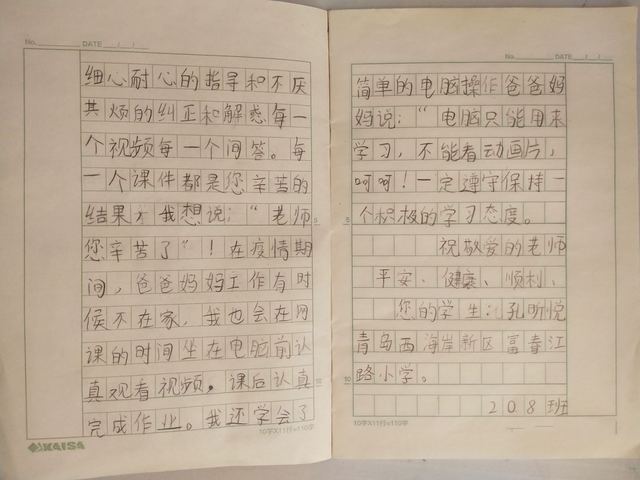 No. DATE / /
细心耐心的指导和不厌
其烦的纠正和解惑每一
个视频每一个问答。每
一个课件都是您辛苦的
结果，我想说：“老师
您辛苦了”！在疫情期
间，爸爸妈妈工作有时
候不在家，我也会在网
课的时间坐在电脑前认
真观看视频。课后认真
完成作业。我还学会了
5
10
KAISA
10字X11行=110字
No. DATE / /
简单的电脑操作爸爸妈
妈说：“电脑只能用来
学习，不能看动画片，
呵呵！一定遵守保持一
个积极的学习态度。
祝敬爱的老师
平安、健康、顺利、
您的学生：孔昕悦
青岛西海岸新区富春江
路小学。
208班
5
10
10字X11行=110字